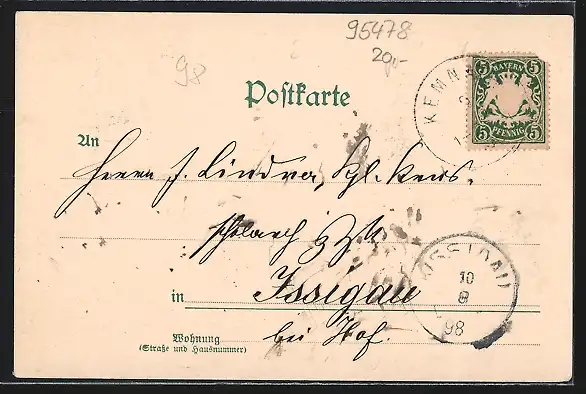 95478
20,-
98
Postkarte
KEMN
5 BAYERN 5
5 PFENNIG 5
An
Herrn J. Lindner, Kgl.
z. Zt.
ISSIGAU
10
8
98
in Issigau
bei Hof.
Wohnung
(Straße und Hausnummer)